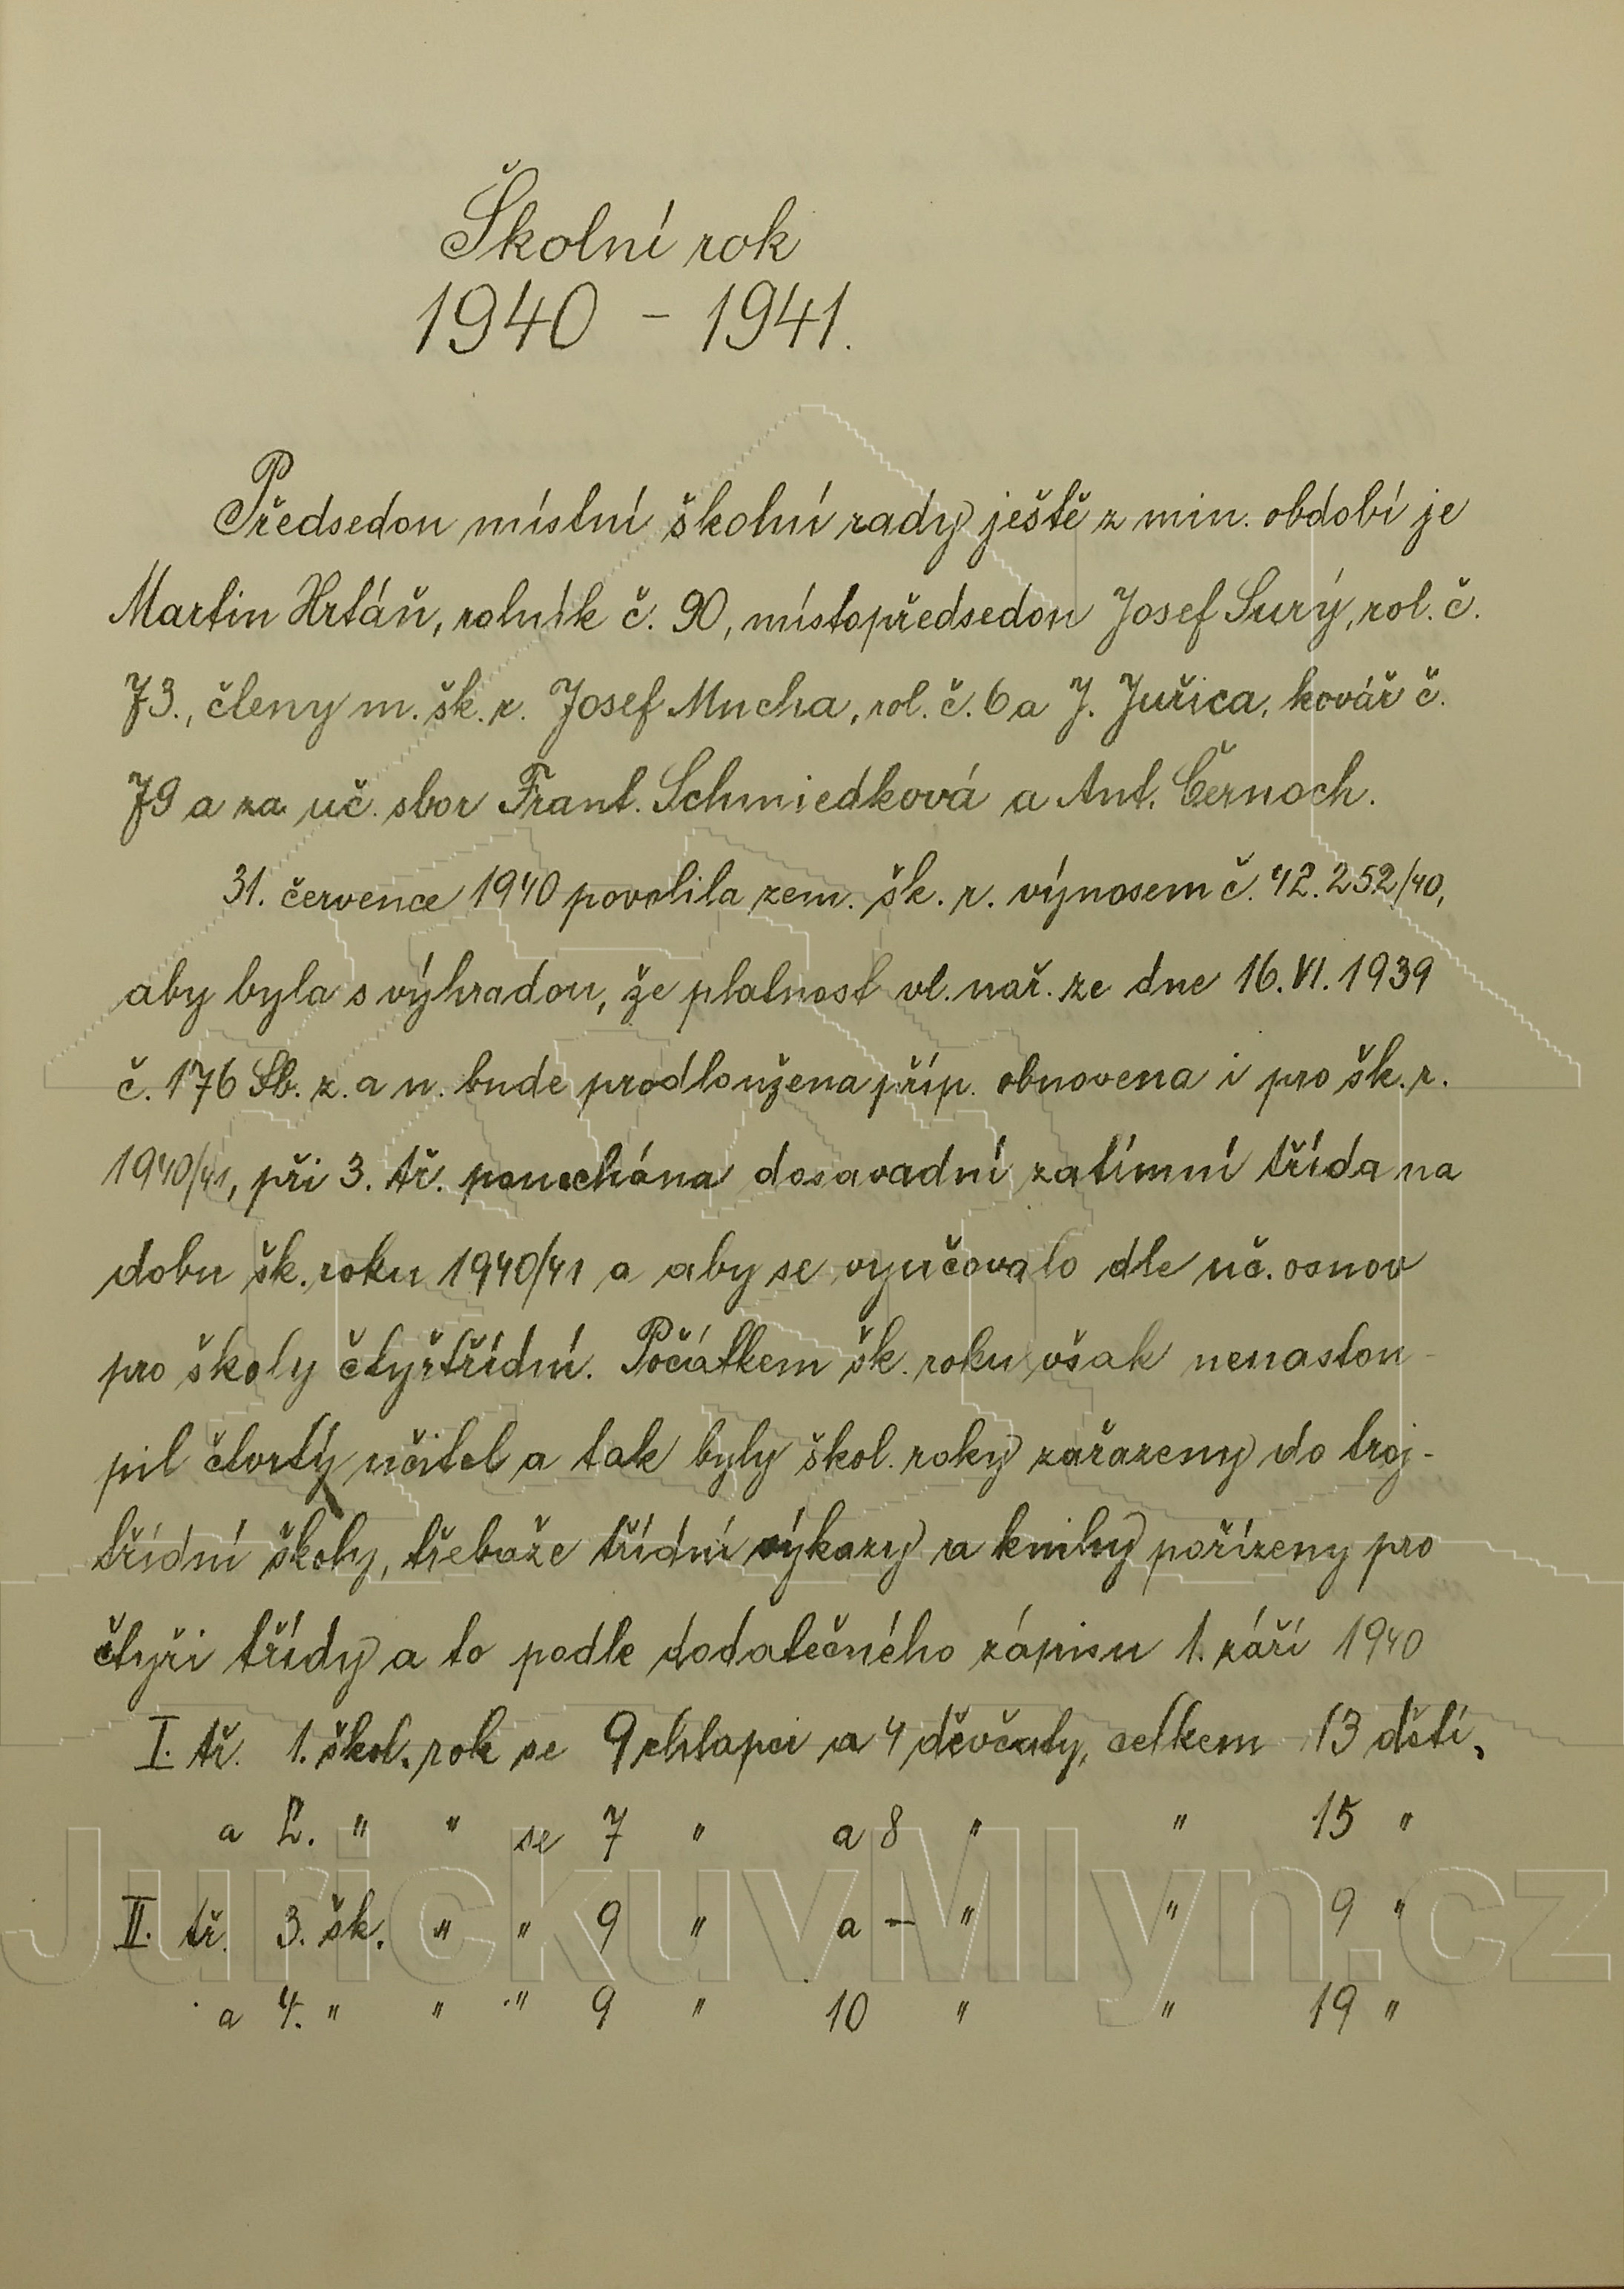 Školní rok
1940 - 1941.
Předsedou místní školní rady ještě z min. období je
Martin Hrtáň, rolník č. 90, místopředsedou Josef Surý, rol. č.
73., členy m. šk. r. Josef Mucha, rol. č. 6 a J. Juřica, kovář č.
79 a za uč. sbor Frant. Schmiedková a Ant. Černoch.
31. července 1940 povolila zem. šk. r. výnosem č. 42.252/40,
aby byla s výhradou, že platnost vl. nař. ze dne 16. VI. 1939
č. 176 Sb. z. a n. bude prodloužena příp. obnovena i pro šk. r.
1940/41, při 3. tř. ponechána dosavadní zatímní třída na
dobu šk. roku 1940/41 a aby se vyučovalo dle uč. osnov
pro školy čtyřtřídní. Počátkem šk. roku však nenastou-
pil čtvrtý učitel a tak byly škol. roky zařazeny do troj-
třídní školy, třebaže třídní výkazy a knihy pořízeny pro
čtyři třídy a to podle dodatečného zápisu 1. září 1940
I. tř. 1. škol. rok se 9 chlapci a 4 děvčaty, celkem 13 dětí,
a 2. " " se 7 " a 8 " " 15 "
II. tř. 3. šk. " " 9 " a - " " 9 "
a 4. " " " 9 " 10 " " 19 "
JurickuvMlyn.cz